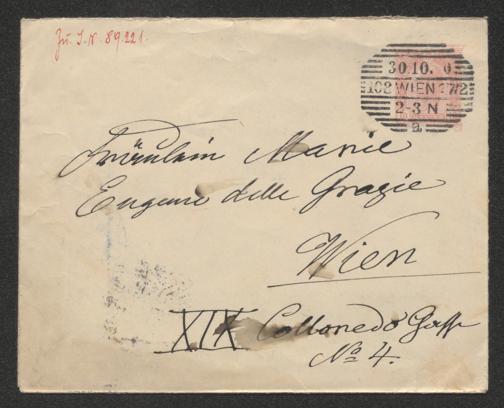 Zu. I. N. 89.221.
30.10. 0
102 WIEN 2
2-3 N
a
Fräulein Marie
Eugenie delle Grazie
Wien
XIX Colloredo Gasse
No 4.